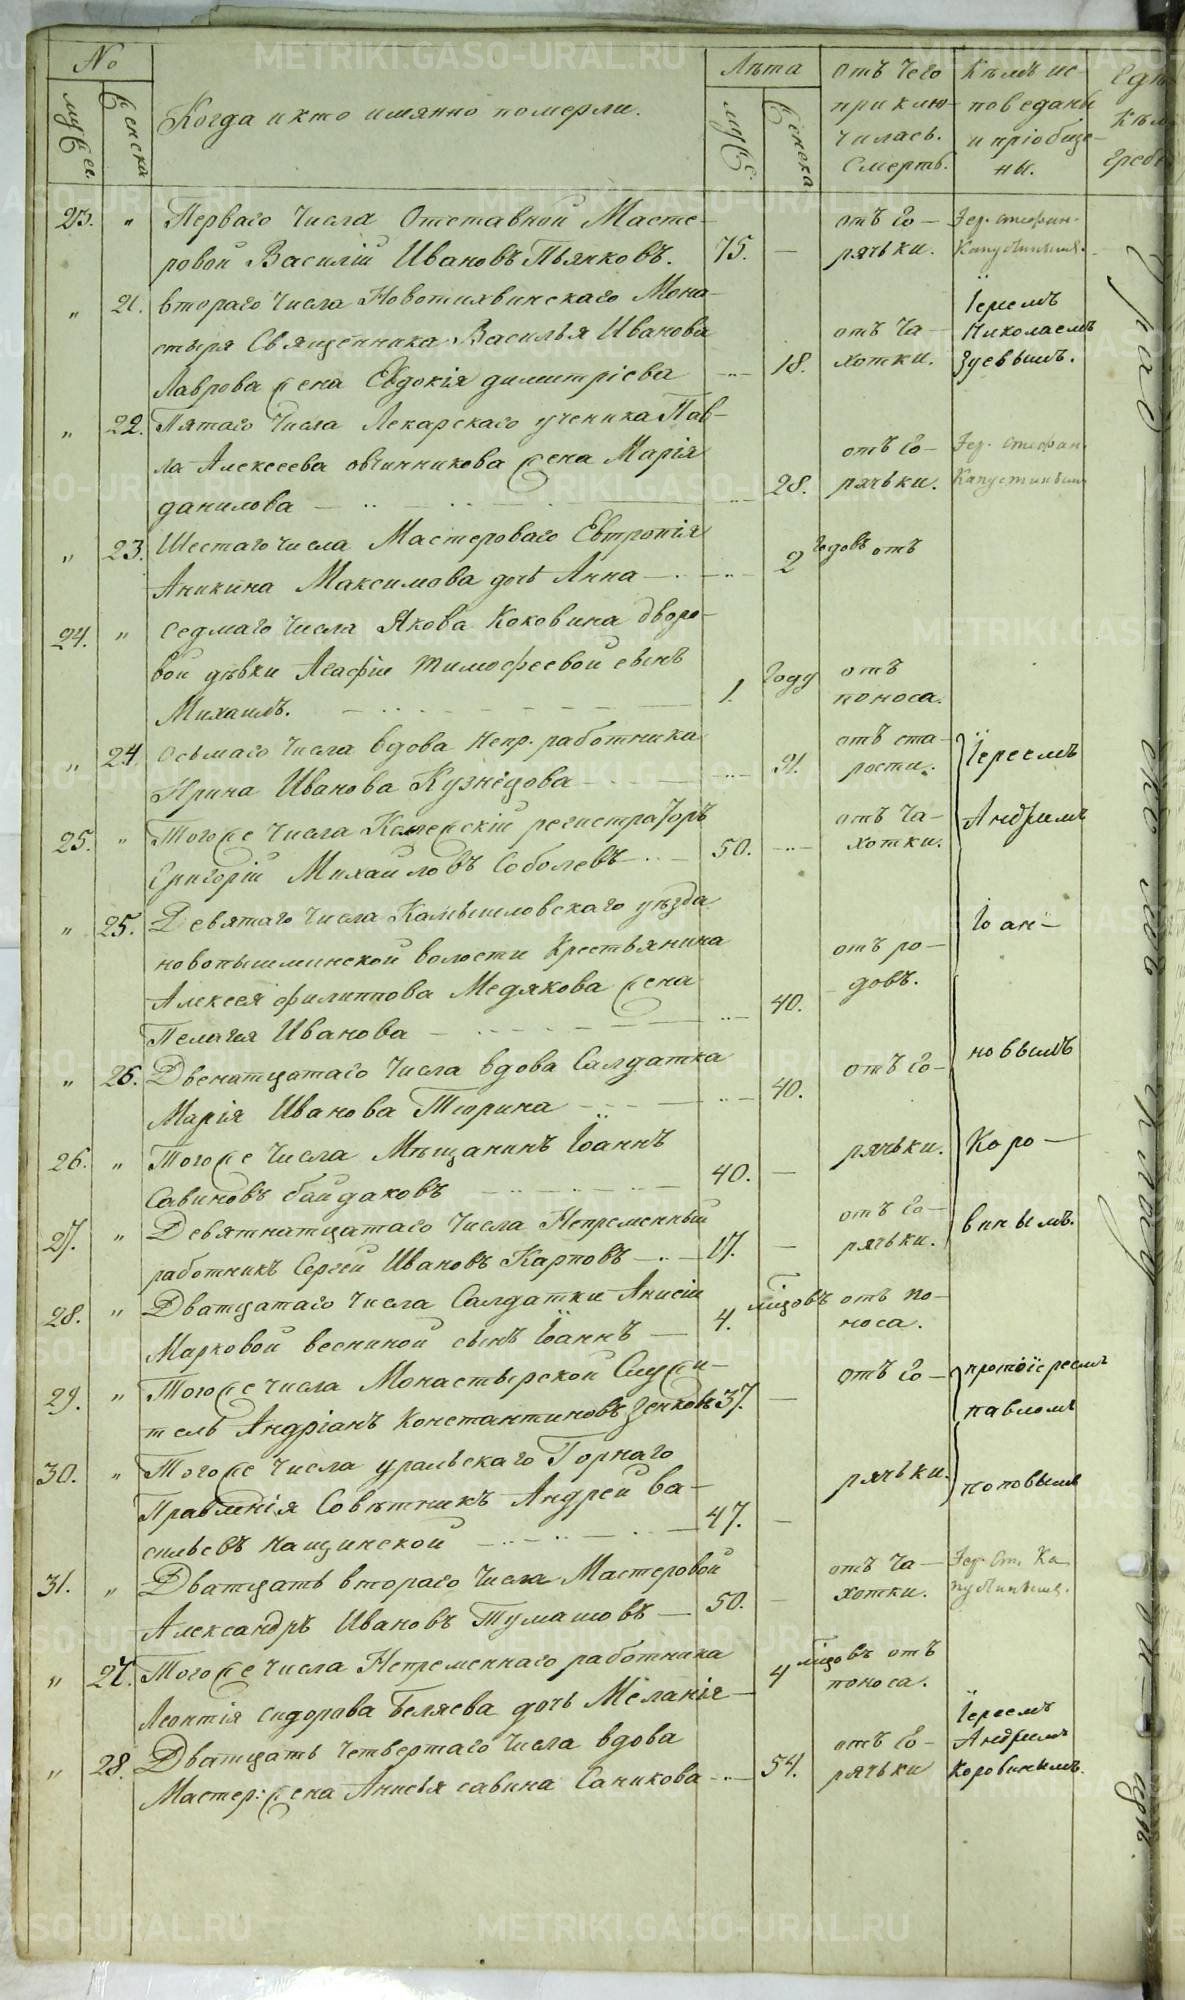 No
Лѣта
муж: пол.
женска
Когда и кто имянно померли.
муж.
женска
отъ чего
приклю-
чилась
смерть.
Кѣмъ ис-
поведаны
и пріобще-
ны.
23. "
Перваго числа Отставной Масте-
ровой Василій Ивановъ Пьянковъ.
75. —
отъ го-
рячьки.
Іер. стефан.
Капустинымъ.
" 21.
втораго числа Новотихвинскаго Мона-
стыря Священника Василья Иванова
Лаврова жена Евдокія димитріева
18.
отъ ча-
хотки.
Іереемъ
Николаемъ
Зуевымъ.
" 22.
Пятаго числа Лекарскаго ученика Пав-
ла Алексеева овчинникова жена Марія
данилова
28.
отъ го-
рячьки.
Іер. стефан.
Капустинымъ
" 23.
Шестаго числа Мастероваго Евтропія
Аникина Максимова дочь Анна
2 годовъ отъ
24. "
седмаго числа Якова Коковина дворо-
вой дѣвки Агафіи тимофеевой сынъ
Михаилъ.
1. году
отъ
поноса.
" 24.
осьмаго числа вдова Непр. работника
Ирина Иванова Кузнецова
91.
отъ ста-
рости.
Іереемъ
25. "
Тогоже числа Колежскій регистраторъ
Григорій Михаиловъ Соболевъ
50.
отъ ча-
хотки.
Андреемъ
" 25.
Девятаго числа Камышловскаго уѣзда
новопышминской волости Крестьянина
Алексея филиппова Медякова жена
Пелагия Иванова
40.
отъ ро-
довъ.
Іоан-
" 26.
Двенатцатаго числа вдова Салдатка
Марія Иванова Тюрина
40.
отъ го-
новымъ
26. "
Тогоже числа Мѣщанинъ Іоаннъ
Савиновъ байдаковъ
40. —
рячьки.
Коро-
27. "
Девятнатцатаго числа Непременный
работникъ Сергей Ивановъ Карповъ
17. —
отъ го-
рячьки.
винымъ.
28. "
Дватцатаго числа Салдатки Анисіи
Марковой весниной сынъ Іоаннъ
4. мѣцовъ
отъ по-
носа.
29. "
Тогоже числа Монастырской Служи-
тель Андріанъ Константиновъ Зенковъ
37. —
отъ го-
протоіереемъ
павломъ
30. "
Тогоже числа уральскаго Горнаго
Правленія Совѣтникъ Андрей Ва-
сильевъ Кащинской
47. —
рячьки.
поповымъ
31. "
Дватцать втораго числа Мастеровой
Александръ Ивановъ Тумашовъ
50. —
отъ ча-
хотки.
Іер. Ст. Ка-
пустинымъ.
" 27.
Тогоже числа Непременнаго работника
Леонтія сидорова Беляева дочь Меланія
4 мѣцовъ отъ
поноса.
" 28.
Дватцать четвертаго числа вдова
Мастер: жена Анисья савина Саникова
54.
отъ го-
рячьки
Іереемъ
Андреемъ
Коровинымъ.
METRIKI.GASO-URAL.RU